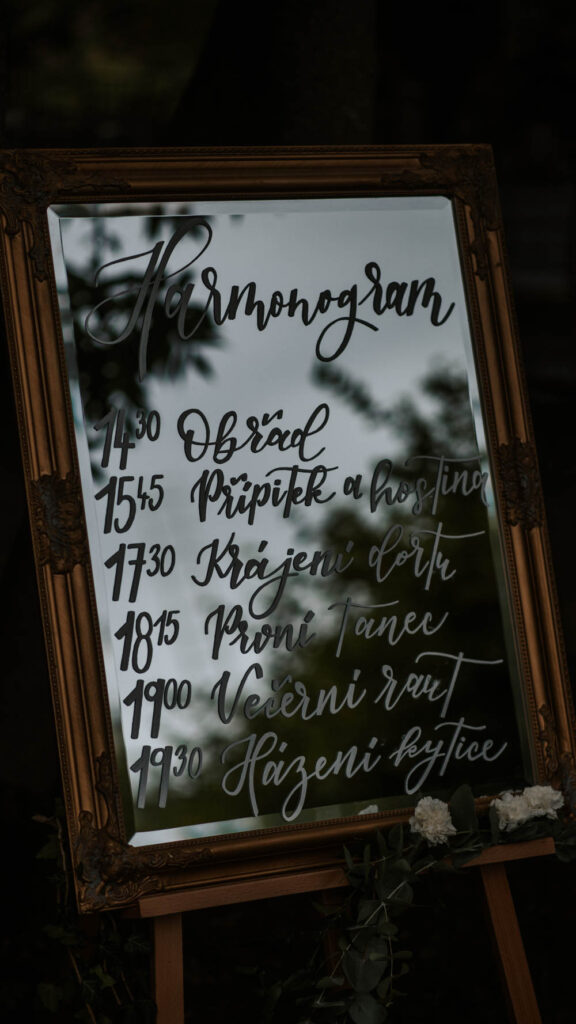 Harmonogram
14³⁰ Obřad
15⁴⁵ Přípitek a hostina
17³⁰ Krájení dortu
18¹⁵ První tanec
19⁰⁰ Večerní raut
19³⁰ Házení kytice